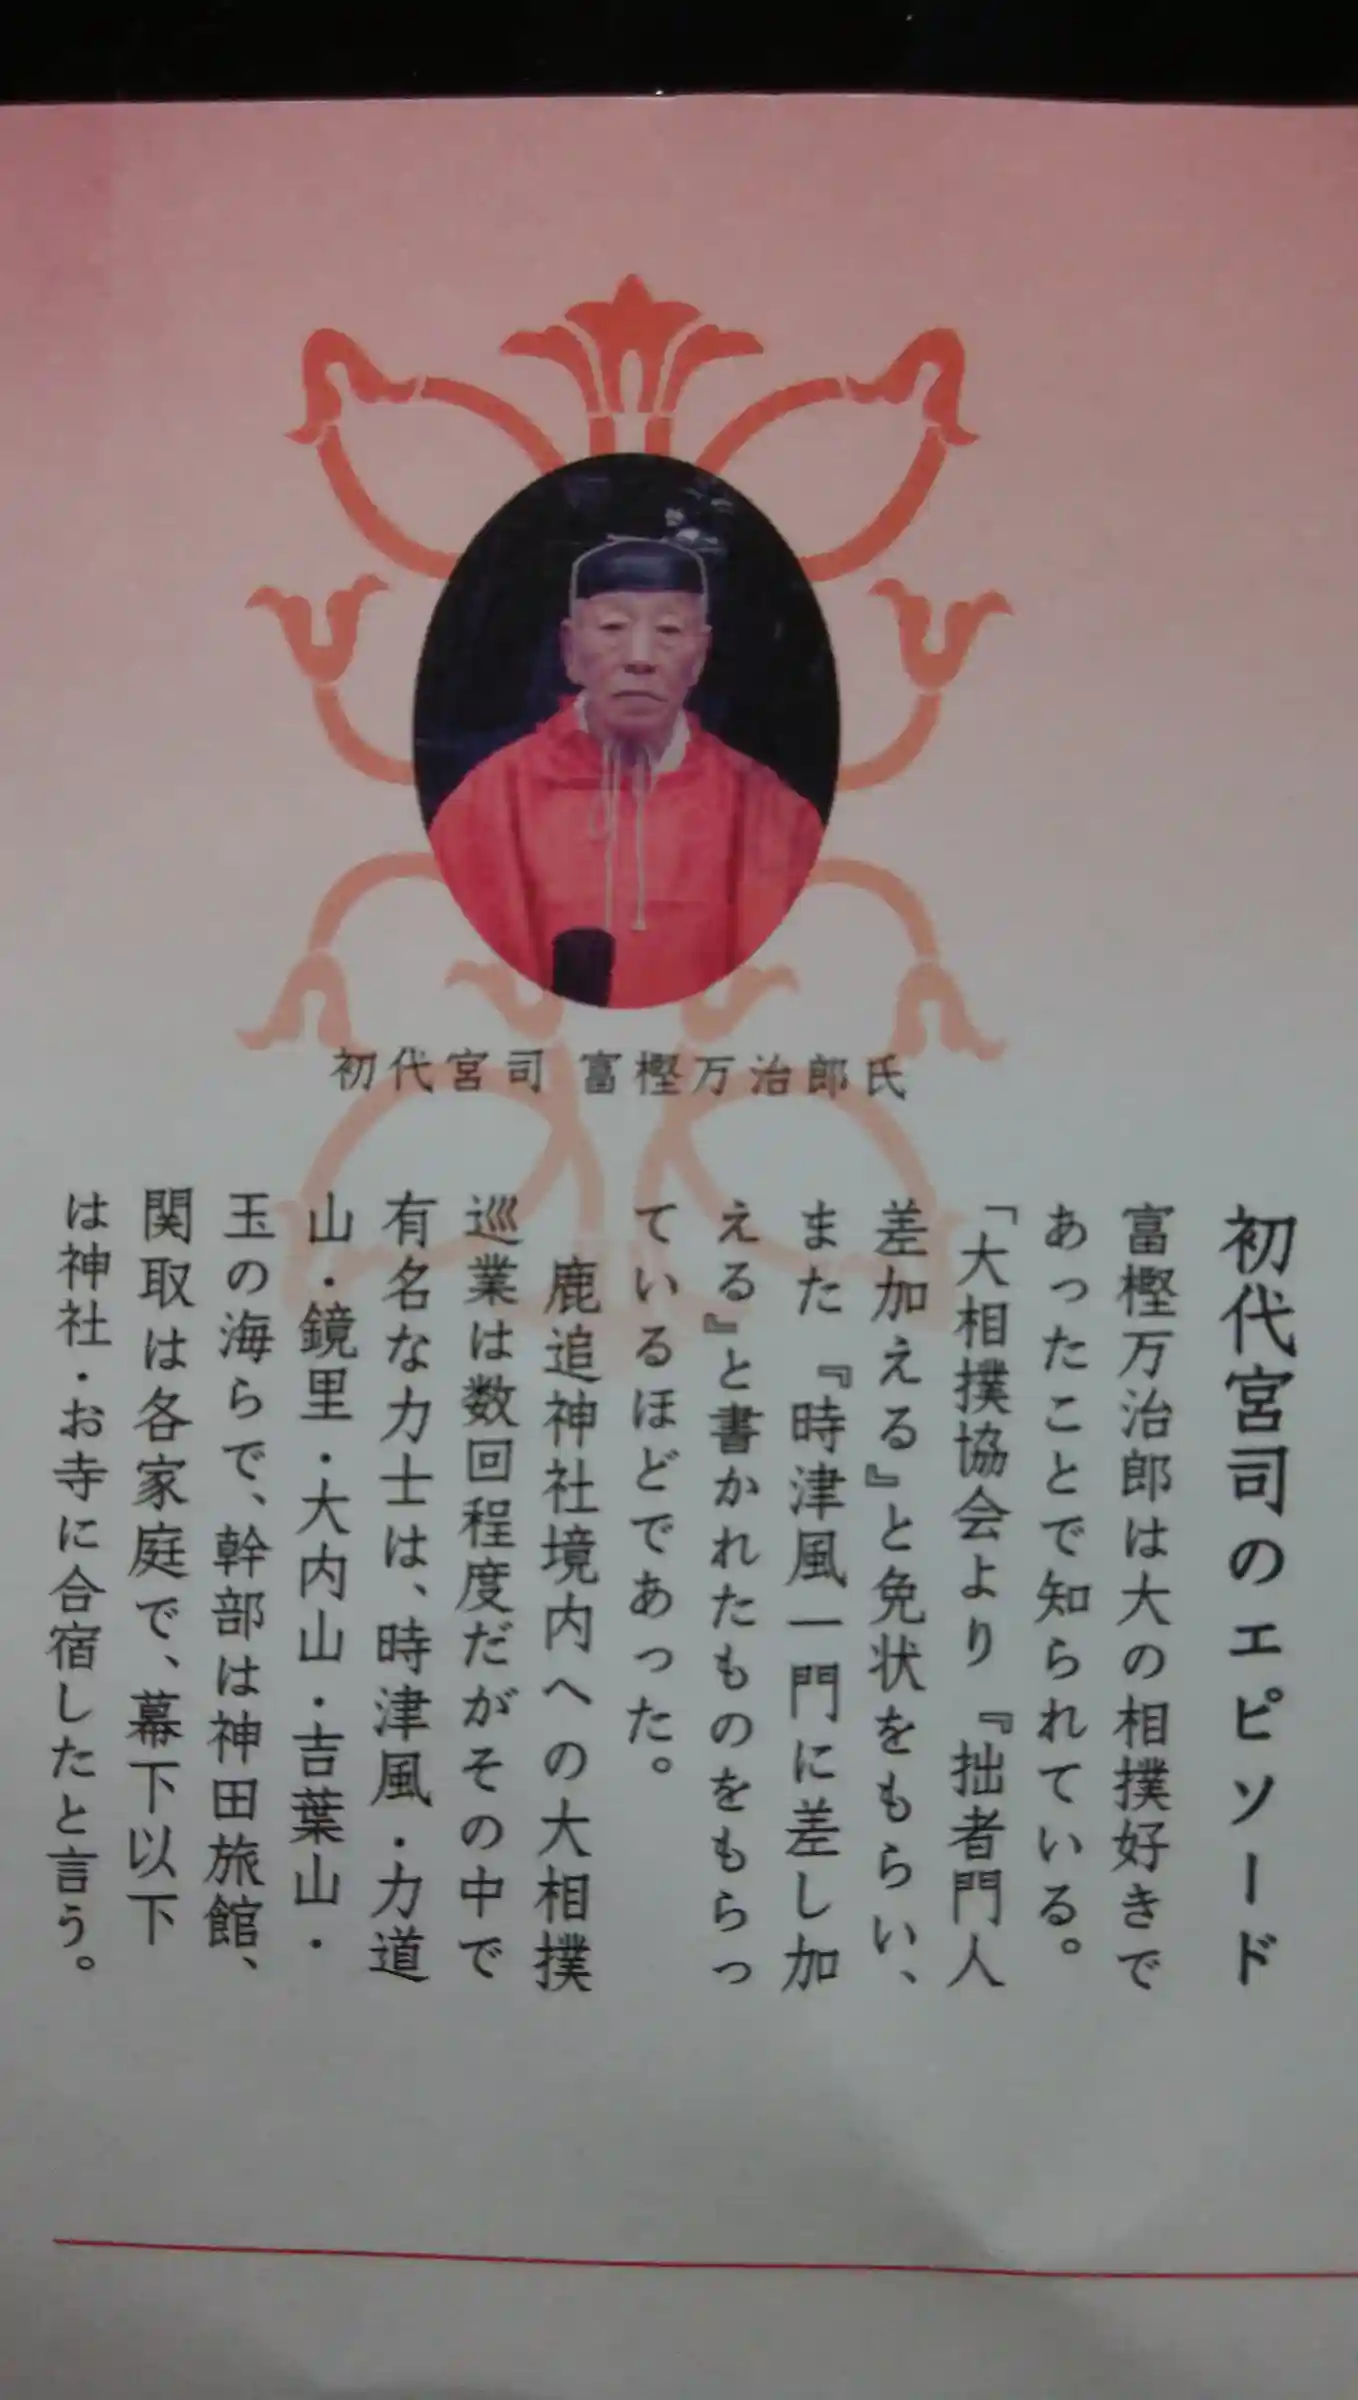 初代宮司 富樫万治郎氏
初代宮司のエピソード
富樫万治郎は大の相撲好きで
あったことで知られている。
「大相撲協会より『拙者門人
差加える』と免状をもらい、
また『時津風一門に差し加
える』と書かれたものをもらっ
ているほどであった。
鹿追神社境内への大相撲
巡業は数回程度だがその中で
有名な力士は、時津風・力道
山・鏡里・大内山・吉葉山・
玉の海らで、幹部は神田旅館、
関取は各家庭で、幕下以下
は神社・お寺に合宿したと言う。